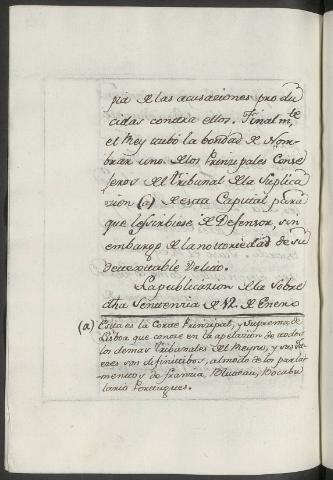 pia de las acusaciones produ
cidas contra ellos. Finalm.te
el Rey tubo la bondad de Nom-
brar uno de los Prinzipales Conse
jeros del Tribunal de la Suplica
zion (a) de esta Capital para
que les sirbiese de Defensor, sin
embargo de la notoriedad de su
detestable Delito.
La publicazion de la sobre
dha Sentenzia de 12. de Enero
(a) Esta es la Corte Prinzipal, y Suprema de
Lisboa que conoze en la apelazion de todos
los demas Tribunales del Reyno, y sus Jue
zes son difinitibos, al modo de los parla
mentos de franzia. Bluteau, Bocabu
lario Portugues.